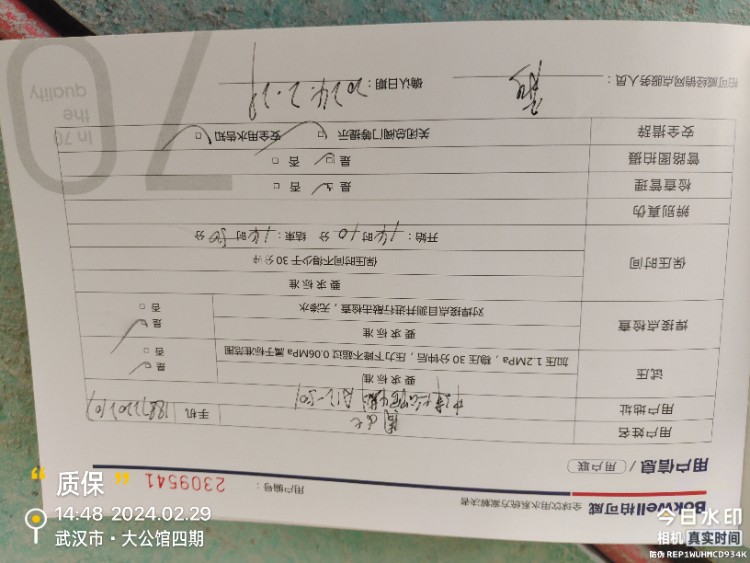 BokWell柏可威 全球饮用水系统方案解决者
用户信息 / 用户联
用户编号： 2309541
用户姓名
用户地址 手机
试压 要求标准 是 否
加压 1.2MPa，稳压，30 分钟后，压力下降不超过 0.06MPa 属于标准范围
焊接点检查 要求标准 是 否
对焊接点目测并进行敲击检查，无渗水
保压时间 要求标准
保压时间不得少于 30 分钟
开始：14时10分 结束：14时50分
辨别真伪
检查管理 是 否
管路图拍摄 是 否
安全措辞 关闭总阀门等提示 安全用水告知
柏可威经销网点服务人员： 确认日期：2024.2.29
In 70
the
quality
70
质保
14:48 2024.02.29
武汉市·大公馆四期
今日水印
相机 真实时间
防伪 REP1WUHMCD934K